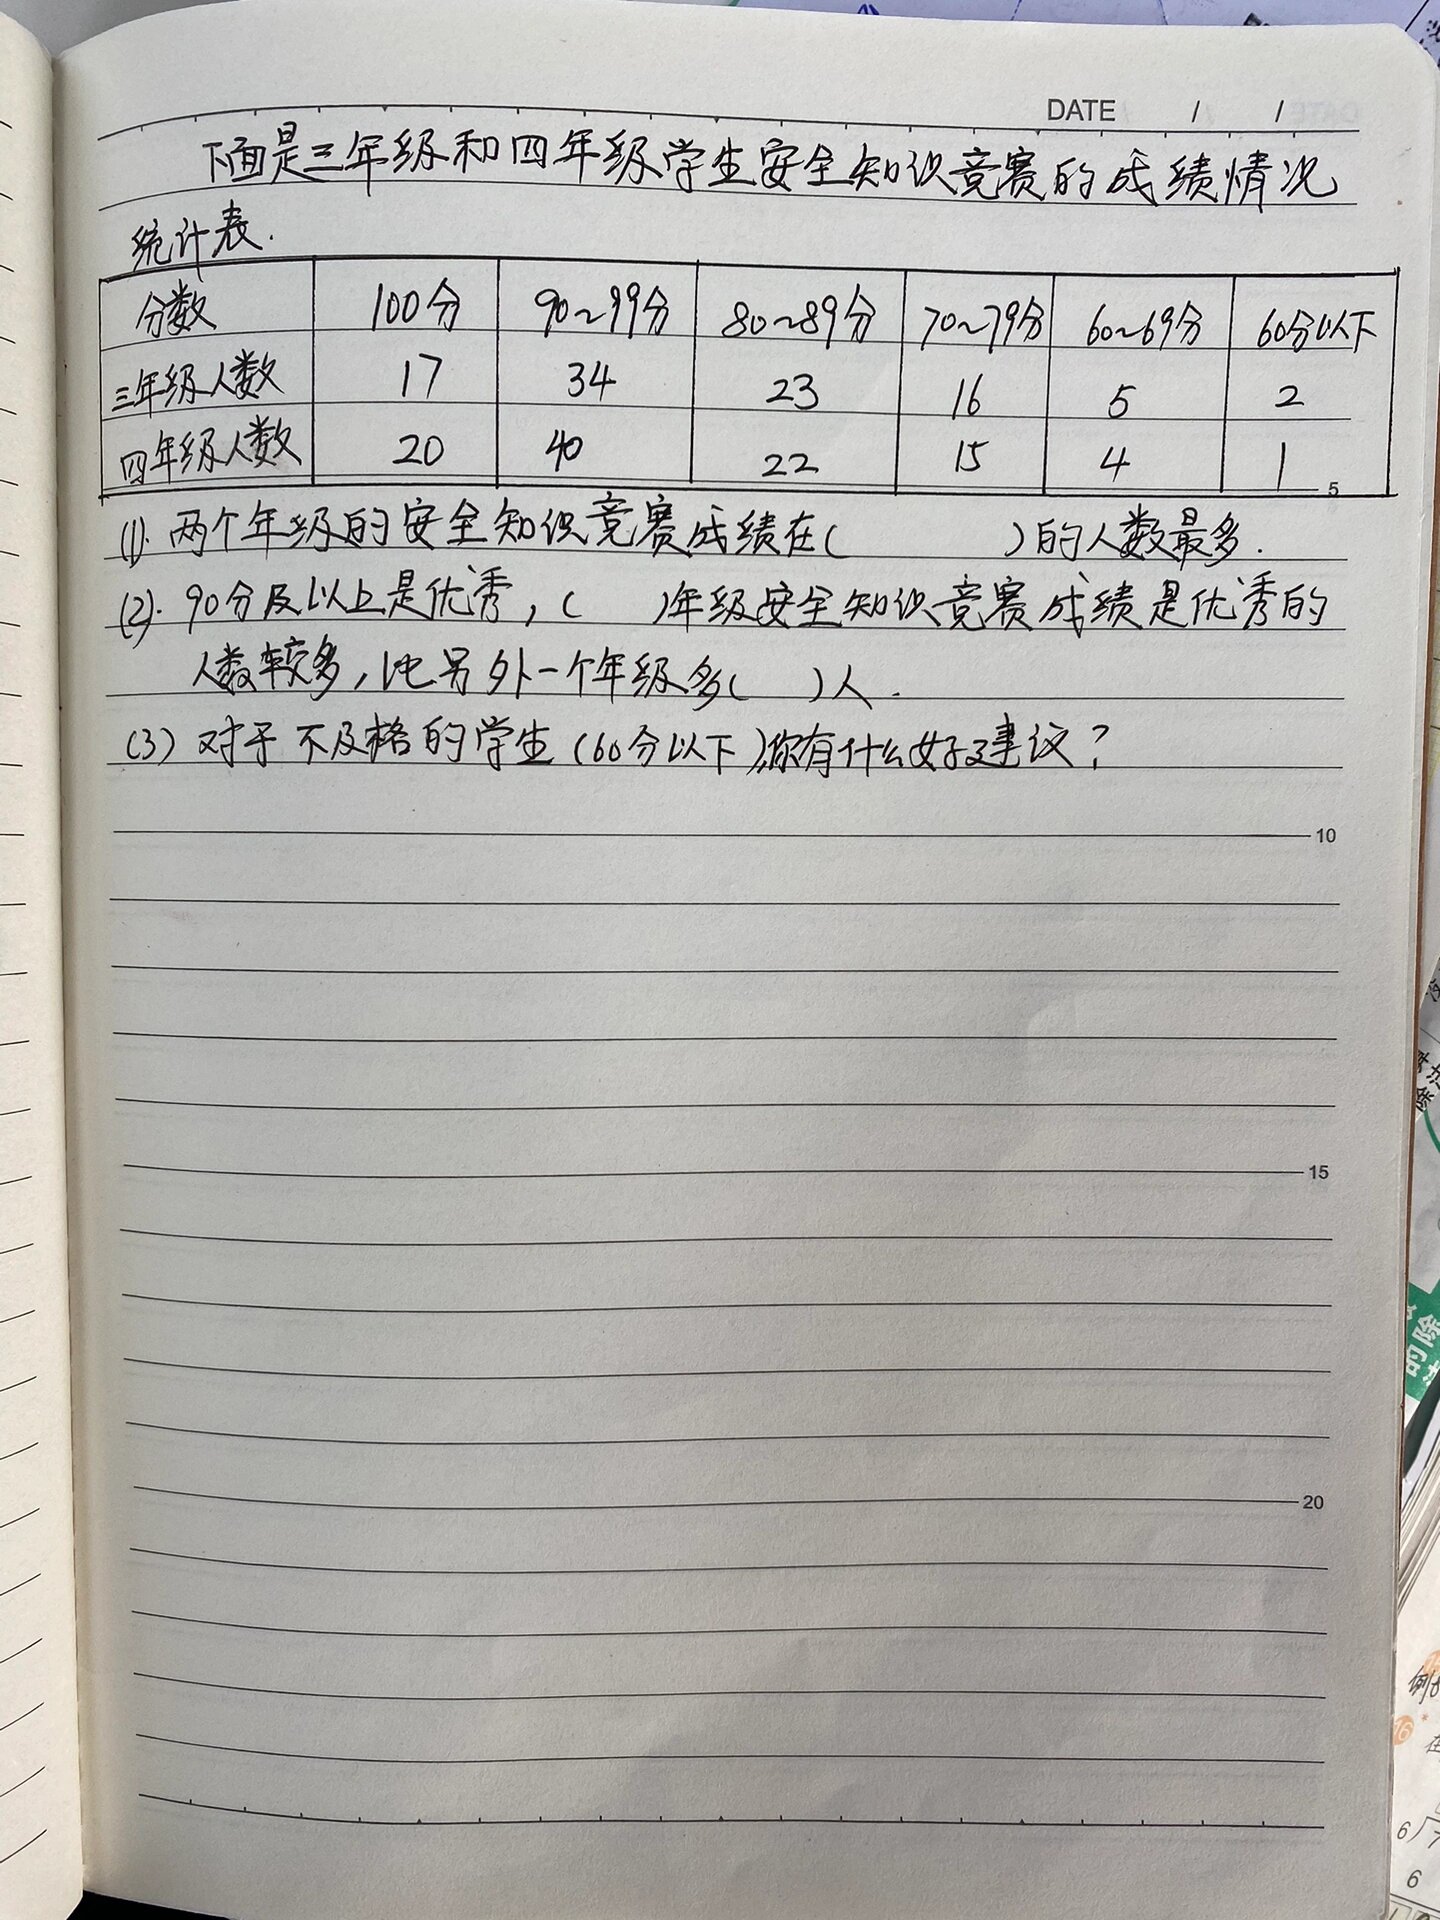 DATE / /
下面是三年级和四年级学生安全知识竞赛的成绩情况
统计表.
分数 100分 90~99分 80~89分 70~79分 60~69分 60分以下
三年级人数 17 34 23 16 5 2
四年级人数 20 40 22 15 4 1
5
(1). 两个年级的安全知识竞赛成绩在( )的人数最多.
(2). 90分及以上是优秀,( )年级安全知识竞赛成绩是优秀的
人数较多,比另外一个年级多( )人.
(3) 对于不及格的学生(60分以下),你有什么好建议?
10
15
20
的除
除
例
16
在
6
6